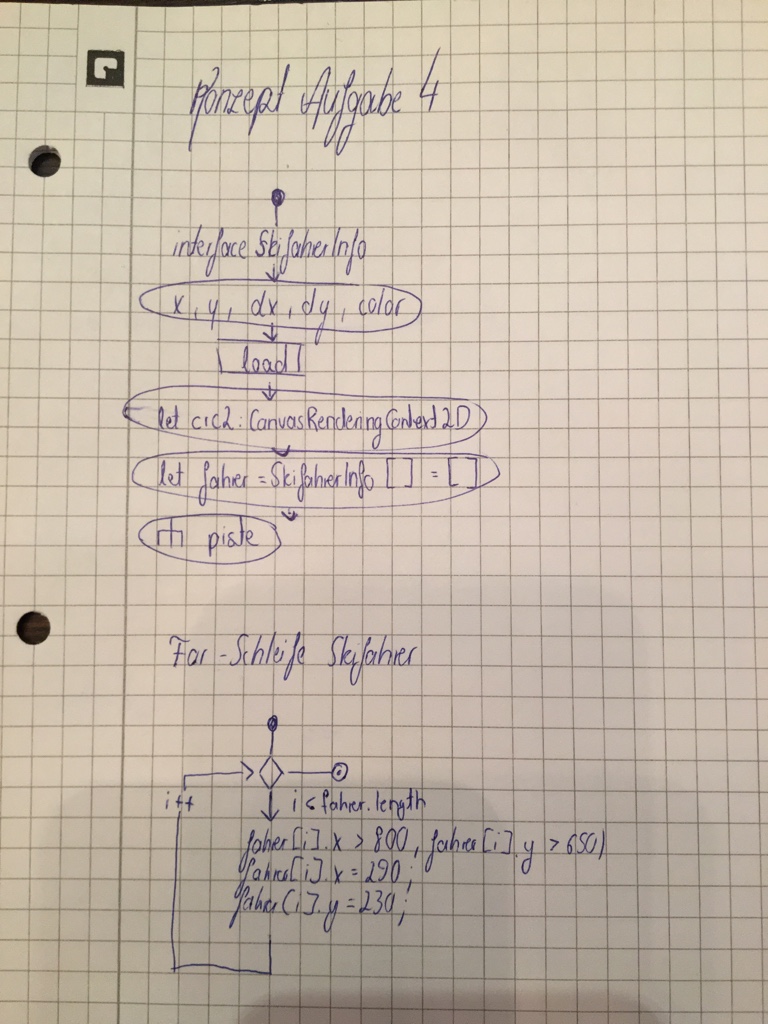 Konzept Aufgabe 4
interface SkifaherInfo
x, y, dx, dy, color
load
let crc2: CanvasRenderingContext2D
let fahrer = SkifahrerInfo [ ] = [ ]
piste
For-Schleife Skifahrer
i++
i < fahrer.length
fahrer[i].x > 800, fahrer[i].y > 650)
fahrer[i].x = 290;
fahrer[i].y = 230;